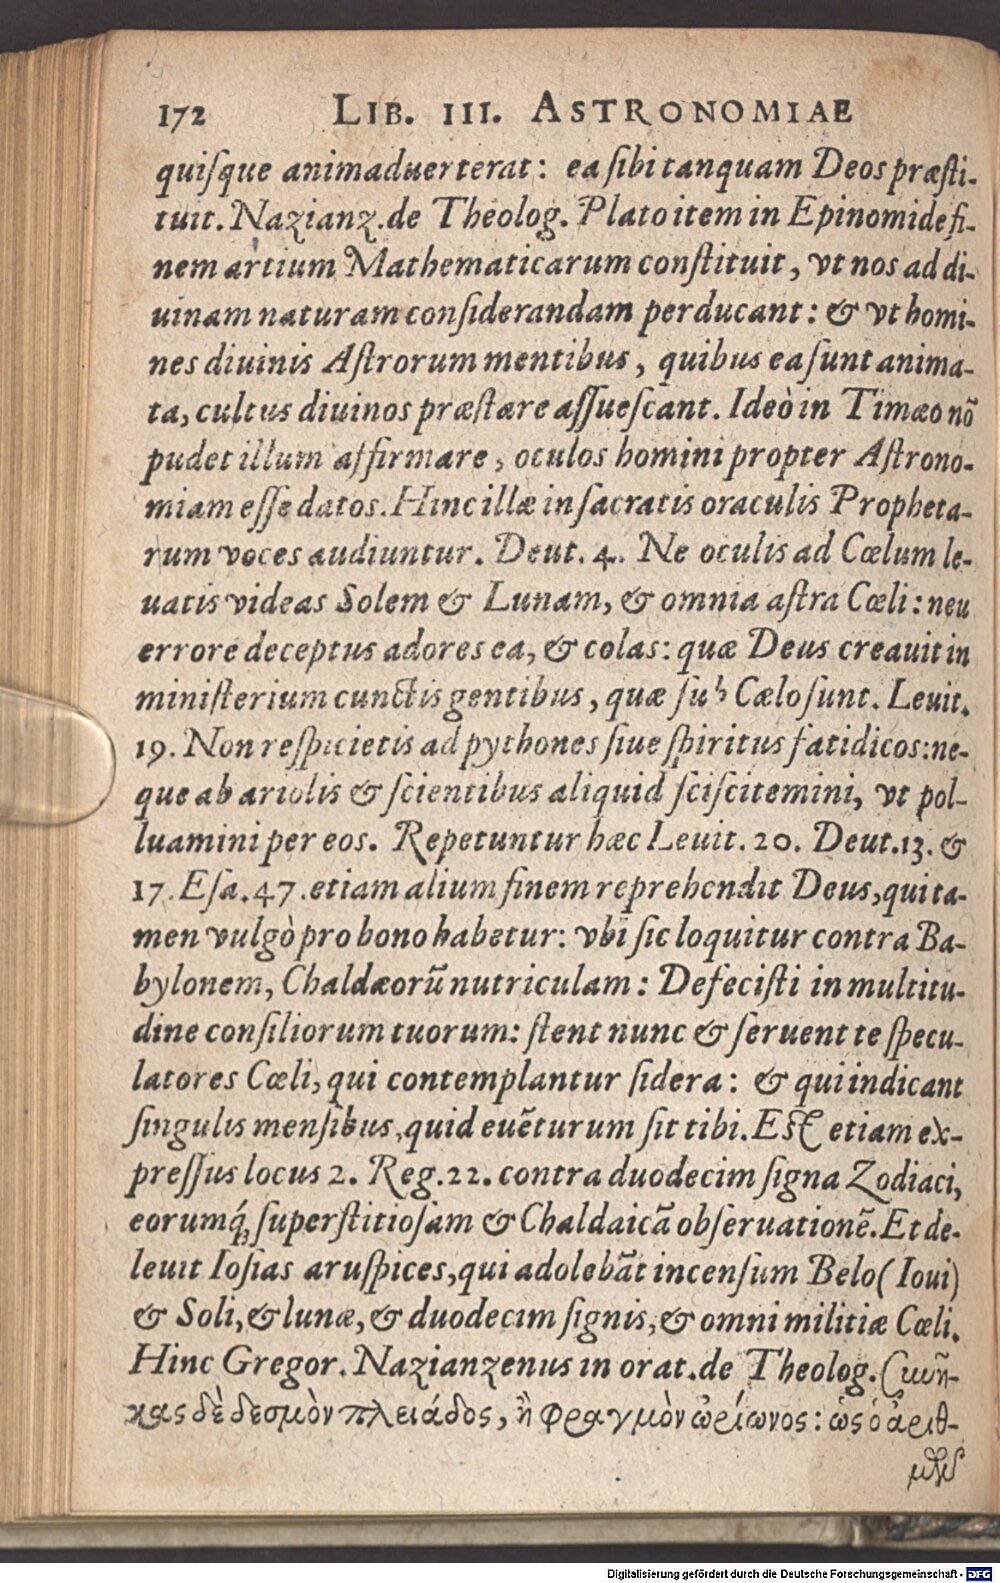 172 LIB. III. ASTRONOMIAE
quiſque animaduerterat: ea ſibi tanquam Deos præſti-
tuit. Nazianz. de Theolog. Plato item in Epinomide fi-
nem artium Mathematicarum conſtituit, vt nos ad di-
uinam naturam conſiderandam perducant: & vt homi-
nes diuinis Aſtrorum mentibus, quibus ea ſunt anima-
ta, cultus diuinos præſtare aſſueſcant. Ideò in Timæo nō
pudet illum affirmare, oculos homini propter Aſtrono-
miam eſſe datos. Hinc illæ in ſacratis oraculis Propheta-
rum voces audiuntur. Deut. 4. Ne oculis ad Cœlum le-
uatis videas Solem & Lunam, & omnia aſtra Cœli: neu
errore deceptus adores ea, & colas: quæ Deus creauit in
miniſterium cunctis gentibus, quæ ſub Cælo ſunt. Leuit.
19. Non reſpicietis ad pythones ſiue ſpiritus fatidicos: ne-
que ab ariolis & ſcientibus aliquid ſciſcitemini, vt pol-
luamini per eos. Repetuntur hæc Leuit. 20. Deut. 13. &
17. Eſa. 47. etiam alium finem reprehendit Deus, qui ta-
men vulgò pro bono habetur: vbi ſic loquitur contra Ba-
bylonem, Chaldæorũ nutriculam: Defeciſti in multitu-
dine conſiliorum tuorum: ſtent nunc & ſeruent te ſpecu-
latores Cœli, qui contemplantur ſidera: & qui indicant
ſingulis menſibus, quid euẽturum ſit tibi. Eſt etiam ex-
preſſus locus 2. Reg. 22. contra duodecim ſigna Zodiaci,
eorumq́; ſuperſtitioſam & Chaldaicã obſeruationẽ. Et de-
leuit Ioſias aruſpices, qui adolebãt incenſum Belo (Ioui)
& Soli, & lunæ, & duodecim ſignis, & omni militiæ Cœli.
Hinc Gregor. Nazianzenus in orat. de Theolog. Συνῆ-
κας δὲ δεσμὸν πλειάδος, ἢ φραγμὸν ὠρίωνος: ὡς ὁ ἀριθ-
μῶν
Digitalisierung gefördert durch die Deutsche Forschungsgemeinschaft - DFG